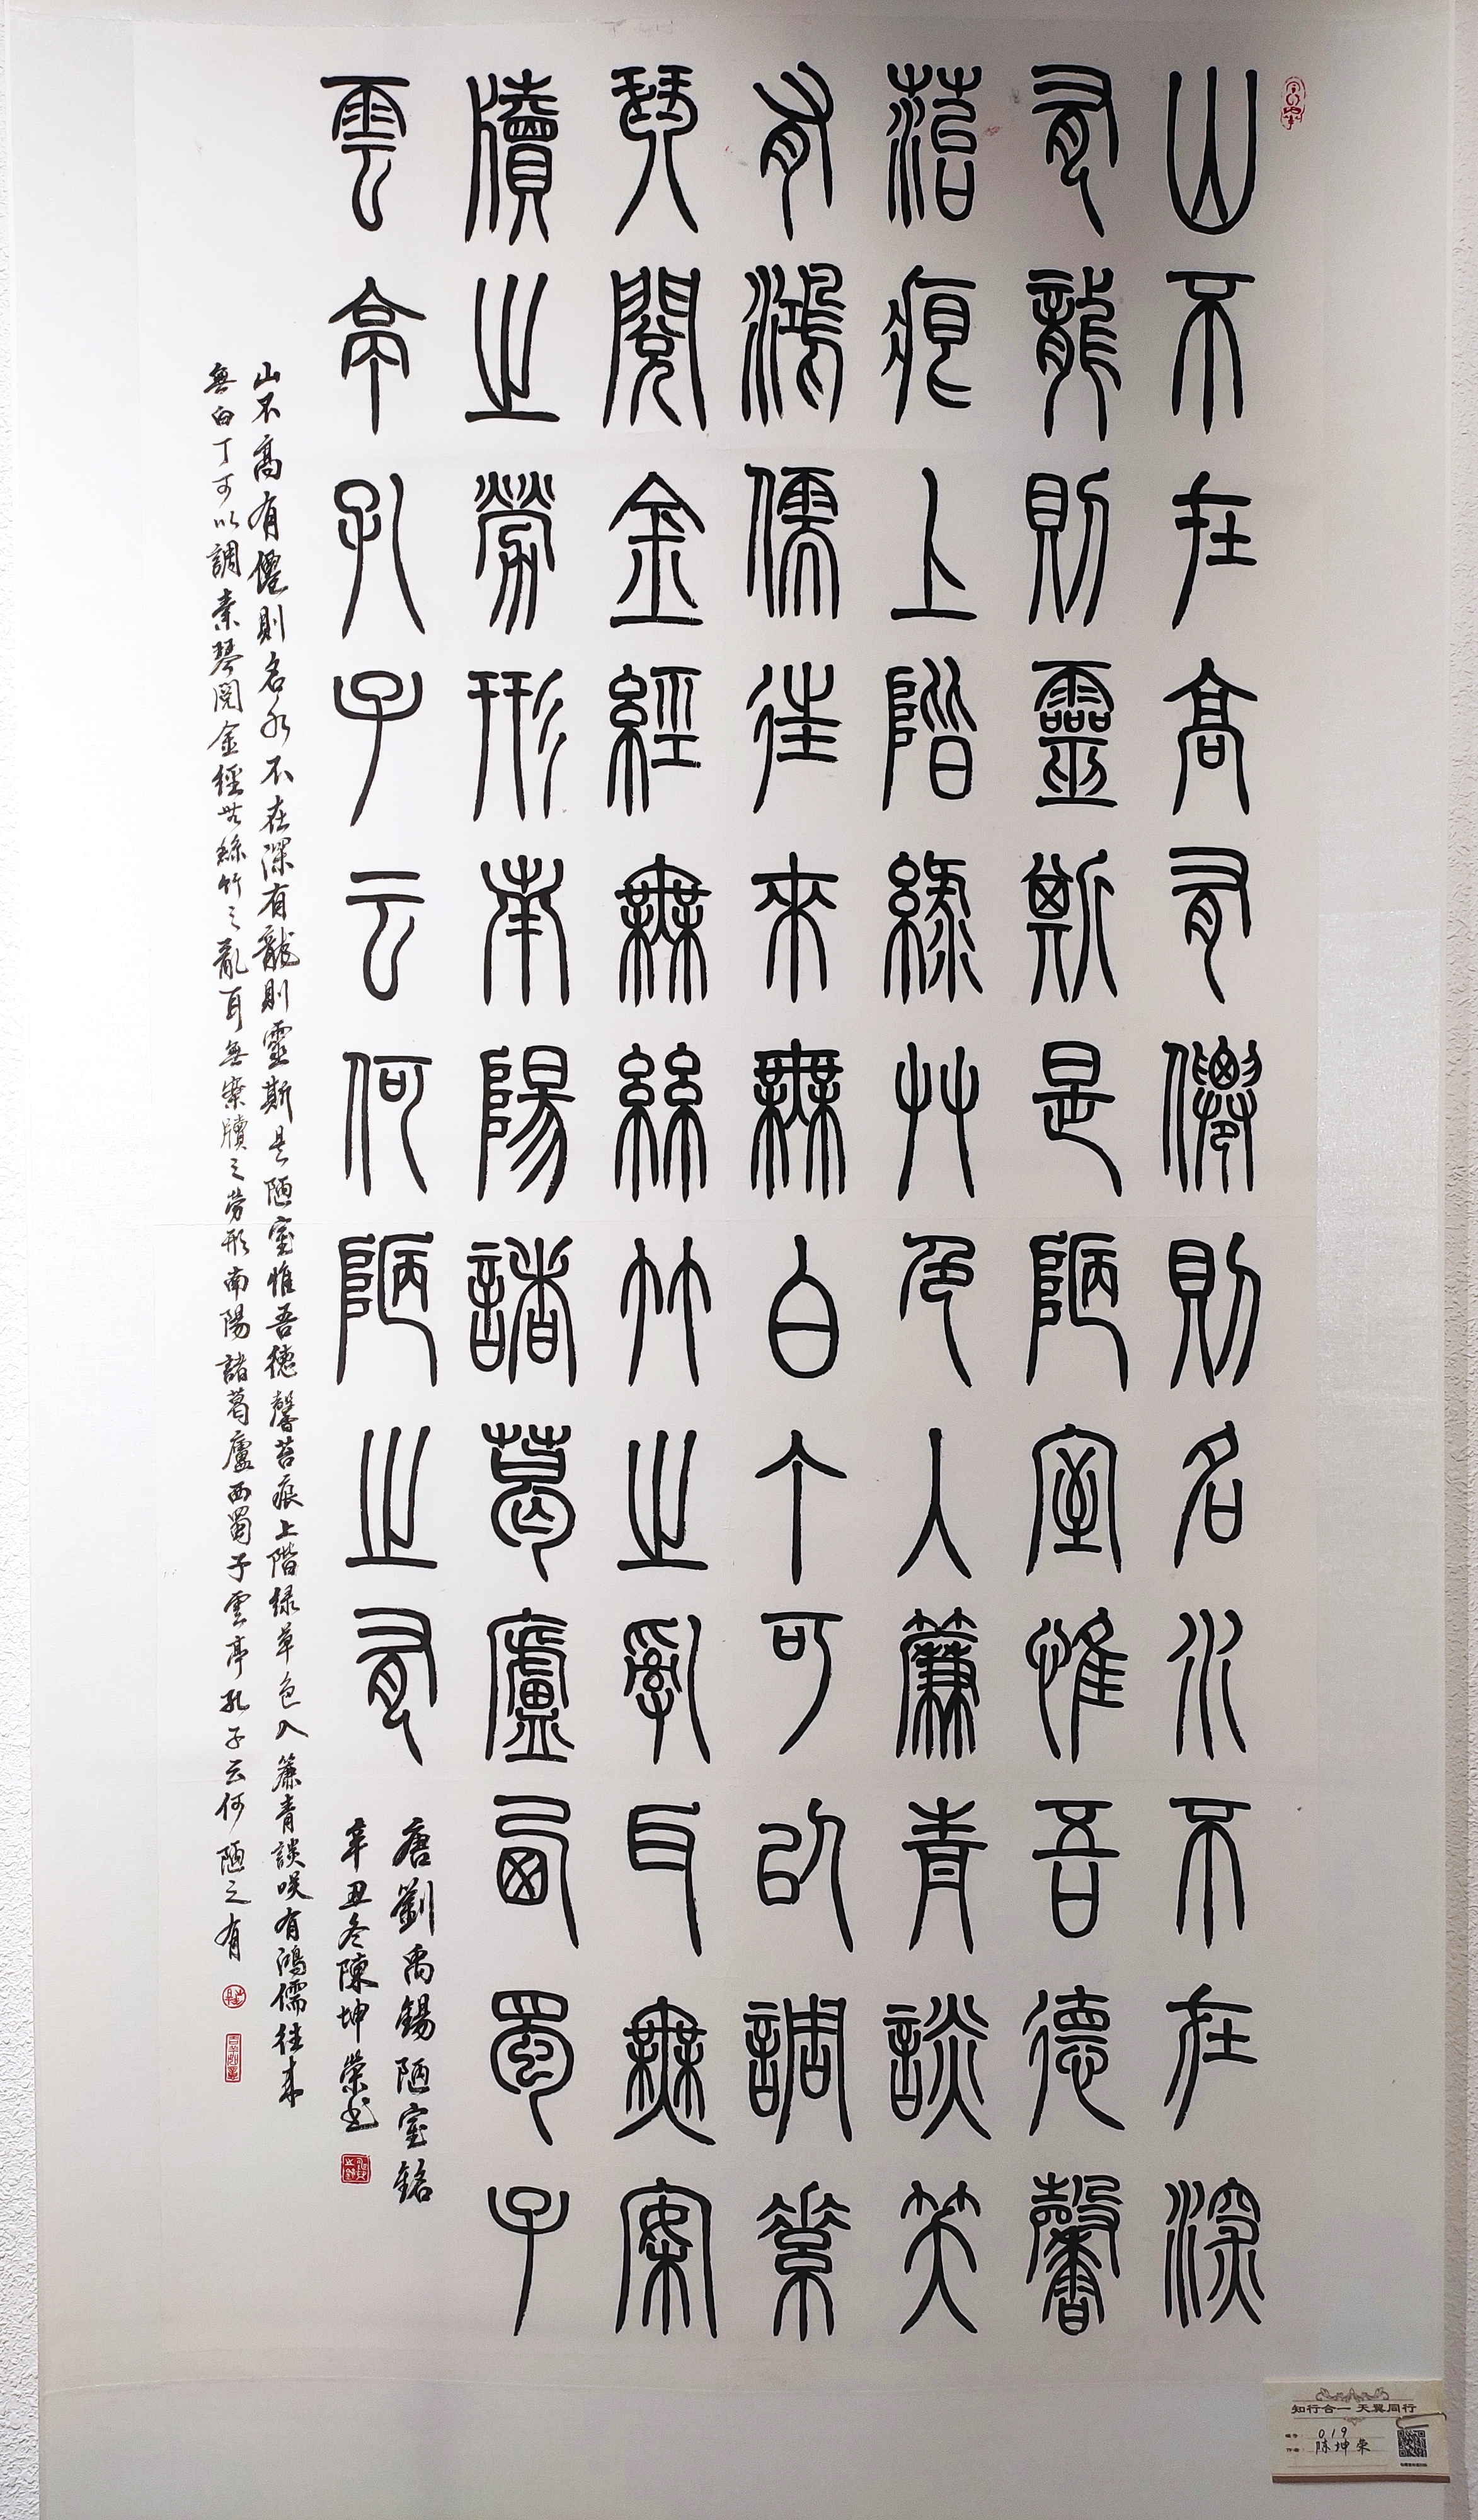 山不在高有僊則名水不在深
有龍則靈斯是陋室惟吾德馨
菭痕上階綠艸色入簾青談笑
有鴻儒往來無白丁可以調素
琴閱金經無絲竹之亂耳無案
牘之勞形南陽諸葛廬西蜀子
雲亭孔子云何陋之有
唐劉禹錫陋室銘
辛丑冬陳坤榮書
山不高有僊則名水不在深有龍則靈斯是陋室惟吾德馨苔痕上階緑草色入簾青談咲有鴻儒往来
無白丁可以調素琴閱金經無絲竹之亂耳無案牘之勞形南陽諸葛廬西蜀子雲亭孔子云何陋之有
知行合一 天翼同行
019
陈坤荣